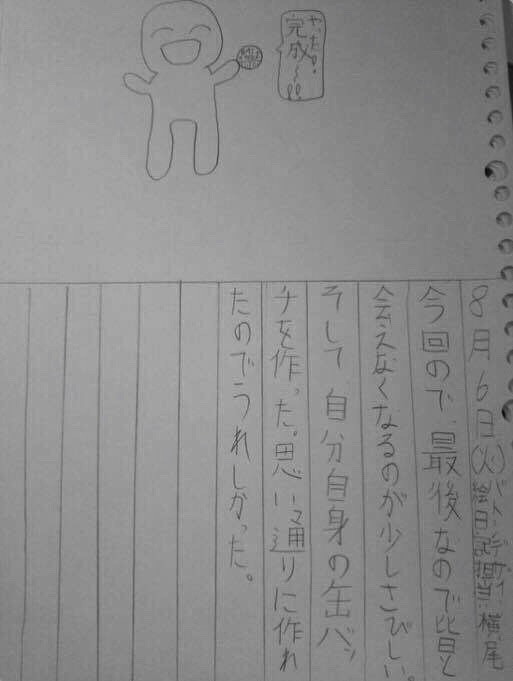 やったね。
完成〜!!
8月6日(火)
絵日記担当:横尾
今回ので、最後なので皆と
会えなくなるのが少しさびしい。
そして自分自身の缶バッ
チを作った。思い通りに作れ
たのでうれしかった。